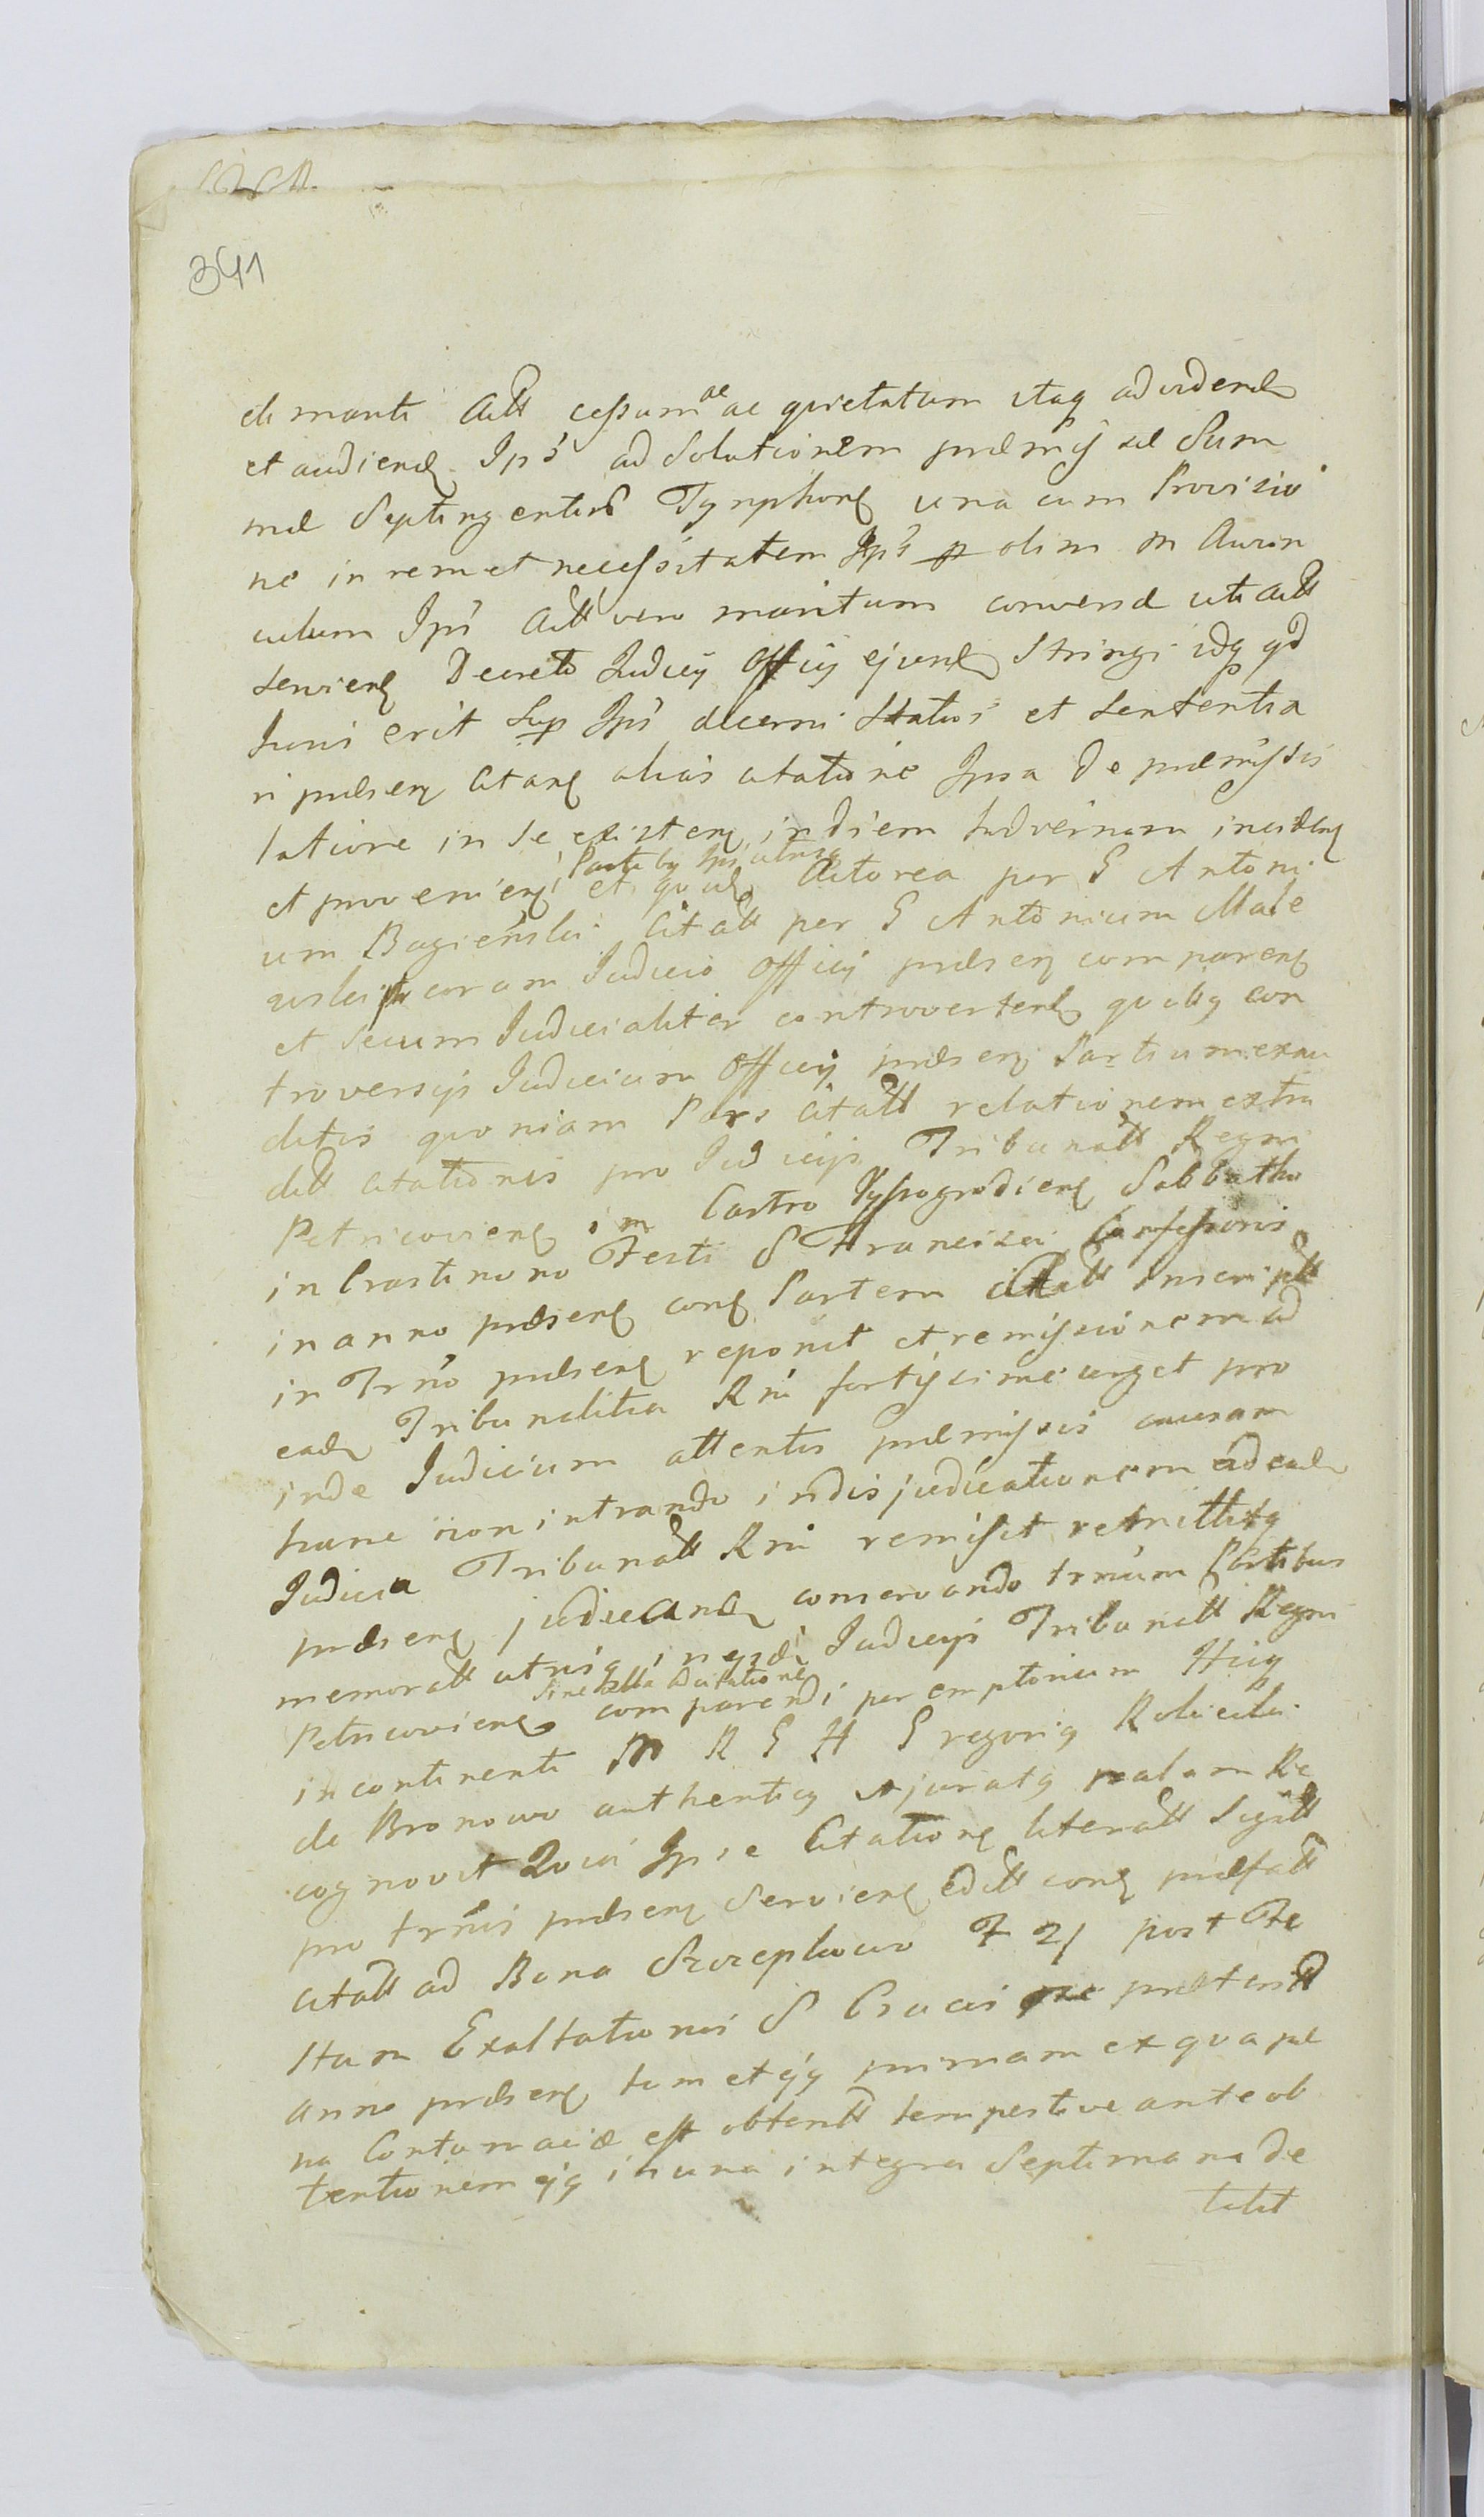 341
et mariti Actt cessum ac ac quietatum itaq ad videnđ
et audienđ Ips ad Solutionem præmissæ Sum
mæ Septingentorũ Tynphonę una cum Provisio
ne in rem et necessitatem Ips olim M Avun
culum Ips Actt vero maritum conversæ uti Actt
servienę Decreto Judicij Officij ejusnđ stringi idq qđ
Juris erit Sup Ips decerni Statui et Sententia
ri præsenę Citanę alias citatione Ipsa de præmissis
latiore in se existenę in diem hodiernam incidenę
et provenienę Partibq Ips utrisq
et quidę Actorea per G Antoni
um Bagieński Citatt per G Antonium Male
coram Judicio Officij præsenę comparenę
et secum Judicialiter controvertenđ quibq con
troversijs Judicium Officij præsenę Partium exau
ditis quoniam Pars Citatt relationem extra
ditt citationis pro Judicijs Tribunatt Regni
Petricoviensę in Castro Vyssogrodienę Sabbatho
in Crastinono Festi S Francisci Confessoris
in anno præsenę conę Partem Citatt inscriptt
in Trno præsenę reponit et remissionem ad
eadę Tribunalitia Rni fortissime urget pro
inde Judicium attentis præmissis causam
hanc non intrando in disjudicationem ad eadę
Judicia Tribunatt Rni remisit remittitq
præsenę judicanđ conservando trnum Partibus
memoratt utrisq in ejsdi Judicijs Tribunatt Regni
Petricovienę sine ulla adcitatione
comparendi peremptorium Hicq
incontinenti M R G H Gregoriq
de Bronowo authenticq juratq palam Re
cognovit Quia Ipse Citationę literatt Sigitt
pro trnis præsenę Servienę editt conę præfatt
citatt ad Bona F 2 post Fe
stum Exaltationis S Crucis præteritt
anno præsenę tum et ejq primam ex qva pæ
na Contumaciæ est obtentt tempestive ante ob
tentionem ejq in una integra Septimana de
tulit